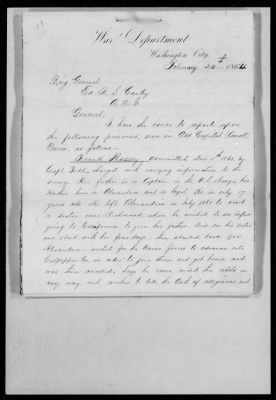 War Department
Washington City,
February 24th 1864
Brig General
Ed. R. S. Canby
A. A. G.
General,
I have the honor to report upon
the following prisoners, now in Old Capitol (Carroll)
Prison as follows.
Frank Massey, committed Nov 1st 1863 by
Capt. charged with carrying information to the
enemy. His father is a Captain in the U. S. Army, his
Mother lives in Alexandria and is loyal. He is only 17
years old. He left Alexandria in July 1863 to visit
a sister near Rectortown, whom he wished to see before
going to California to join his father. Lived on his sister
and staid with her four days. Then started back for
Alexandria waited for the Union forces to advance into
Culpepper Co. in order to join them and get home, and
was then arrested. Says he never aided the rebels in
any way and wishes to take the Oath of allegiance and